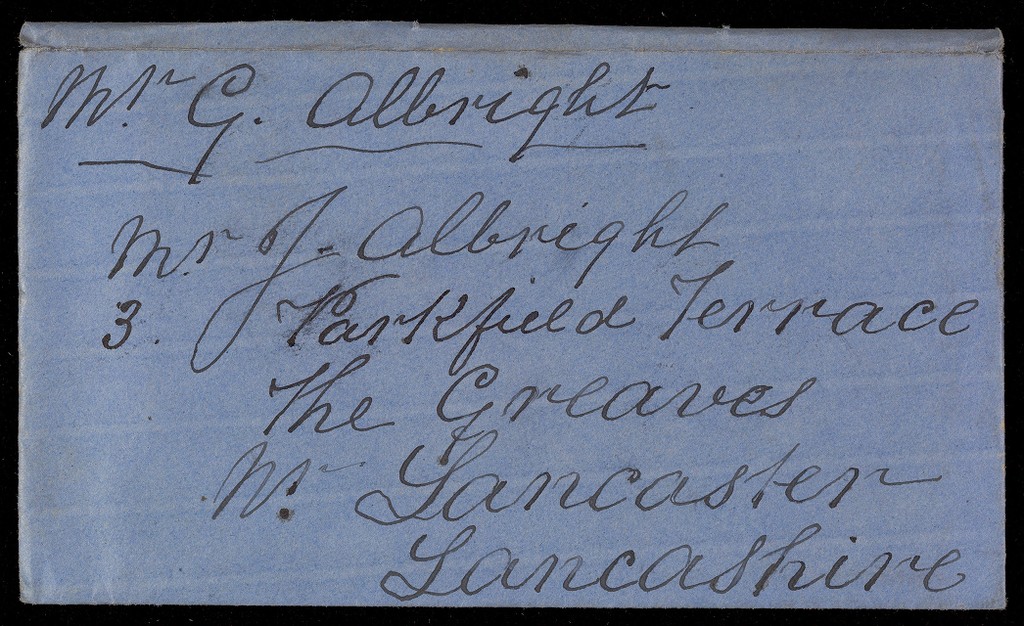 Mr. G. Albright
Mr. J. Albright
3. Parkfield Terrace
The Greaves
Nr. Lancaster
Lancashire